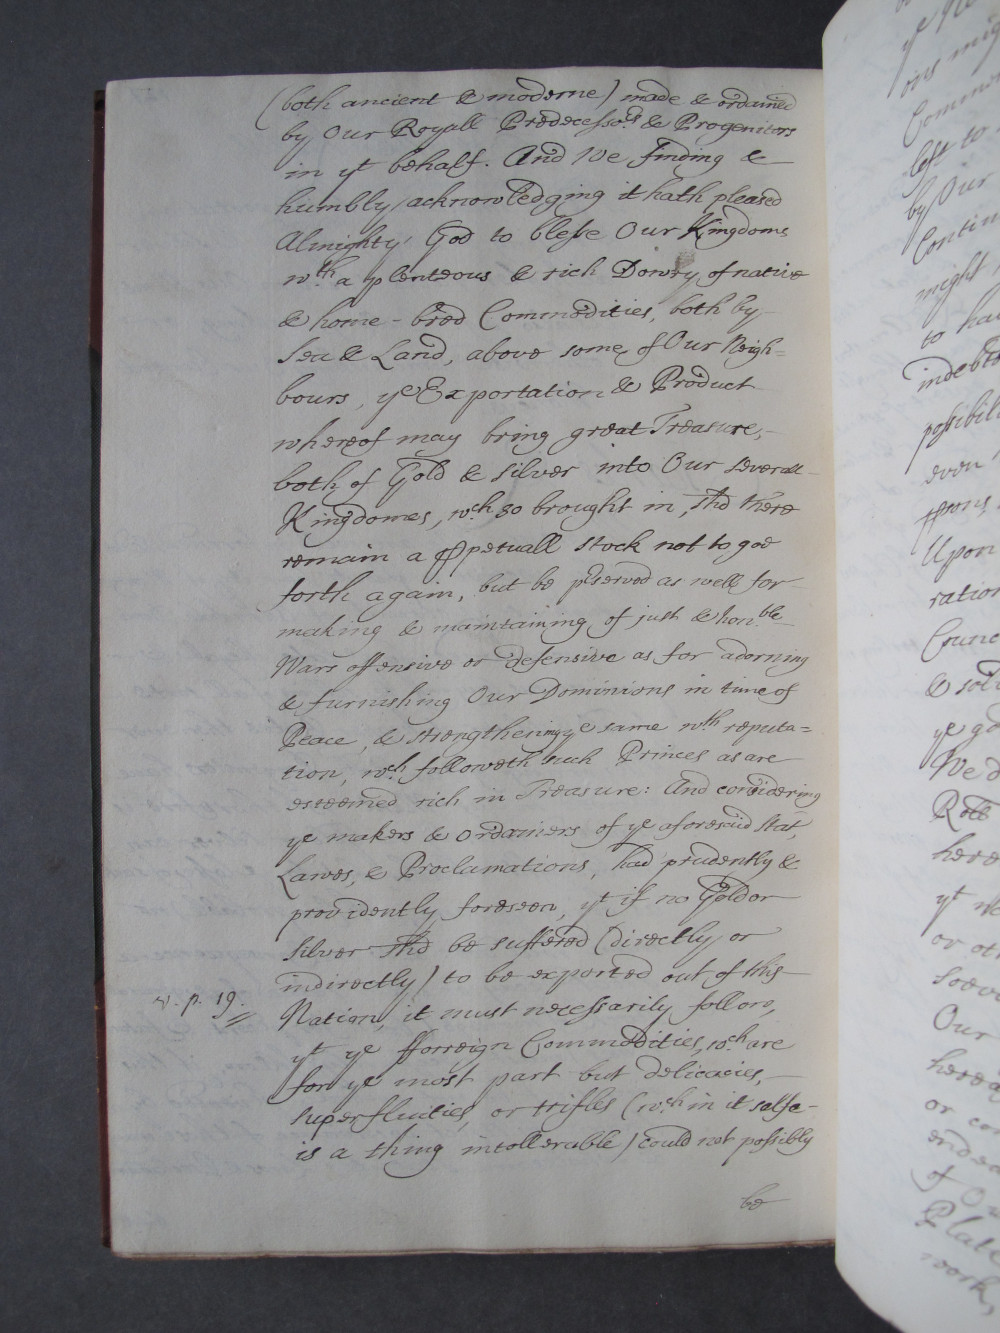 (both ancient & moderne) made & ordained
by Our Royall Predecessors & Progenitors
in yt behalf. And We finding &
humbly acknowledging it hath pleased
Almighty God to blesse Our Kingdoms
wth a plenteous & rich Dowry of native
& home-bred Commodities, both by
Sea & Land, above some of Our Neigh=
bours, ye Exportation & Product
whereof may bring great Treasure,
both of Gold & Silver into Our severall
Kingdomes, wch so brought in, shd there
remain a ppetuall stock not to goe
forth again, but be pserved as well for
making & maintaining of just & honble
Wars offensive or defensive as for adorning
& furnishing Our Dominions in time of
Peace, & strengthening ye same wth reputa=
tion, wch followeth such Princes as are
esteemed rich in Treasure: And considering
ye makers & Ordainers of ye aforesaid Stat,
Lawes, & Proclamations, had prudently &
providently foreseen, yt if no Gold or
Silver shd be suffered (directly or
indirectly) to be exported out of this
v. p. 19.
Nation, it must necessarily follow,
yt ye fforreign Commodities, wch are
for ye most part but delicacies,
superfluities, or trifles (wch in it selfe
is a thing intollerable) could not possibly
be
by Our
might
to
possibil
even
Upon
ration
Counc
ye
We
here
or
Our
or
of
Plate
work,